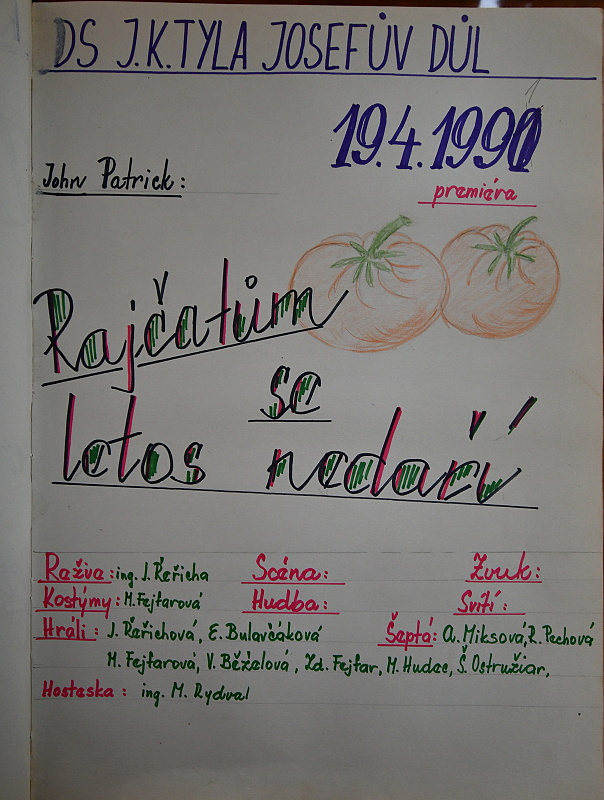 DS J.K.TYLA JOSEFŮV DŮL
19.4.1991
premiéra
John Patrick:
Rajčatům
se
letos nedaří
Reživa: ing. J. Řeřicha Scéna: Zvuk:
Kostýmy: M. Fejfarová Hudba: Svítí:
Hráli: J. Řeřichová, E. Bulavčáková Šeptá: A. Miksová, R. Pechová
M. Fejfarová, V. Běželová, Zd. Fejfar, M. Hudec, Š. Ostružiar,
Hosteska: ing. M. Rydval